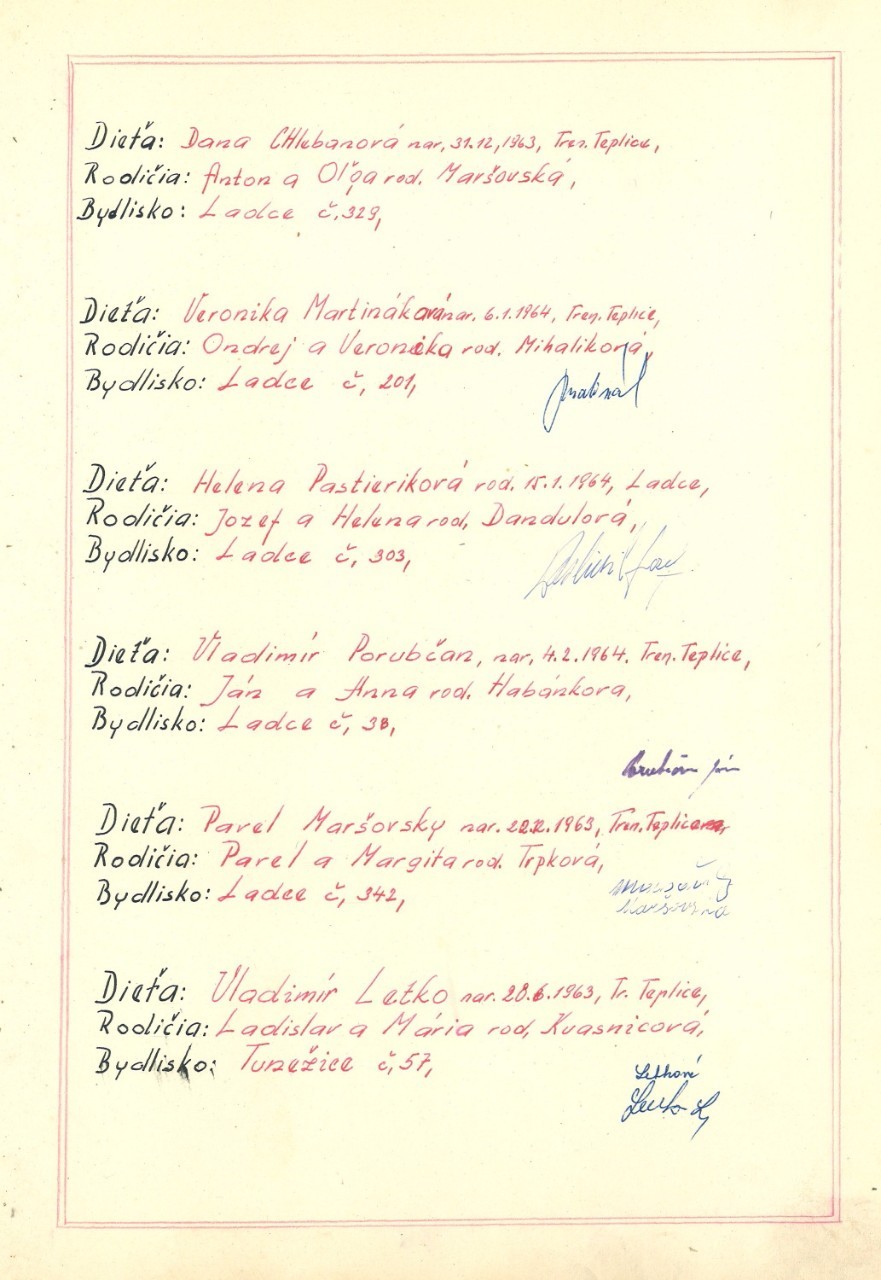 Dieťa: Dana CHlebanová nar, 31.12,1963, Tren. Teplice,
Rodičia: Anton a Oľga rod. Maršovská,
Bydlisko: Ladce č. 329,
Dieťa: Veronika Martináková nar. 6.1.1964, Tren. Teplice,
Rodičia: Ondrej a Veronika rod. Mihaliková,
Bydlisko: Ladce č, 201,
Dieťa: Helena Pastieriková rod. 15.1.1964, Ladce,
Rodičia: Jozef a Helena rod, Dandulová,
Bydlisko: Ladce č, 303,
Dieťa: Vladimír Porubčan, nar, 4.2.1964. Tren. Teplice,
Rodičia: Ján a Anna rod. Habánkova,
Bydlisko: Ladce č,
Dieťa: Pavel Maršovsky nar. 1963, Tren. Teplice
Rodičia: Pavel a Margita rod. Trpková,
Bydlisko: Ladce č, 342,
Maršovská
Dieťa: Vladimír Letko nar. 28.6.1963, Tr. Teplice,
Rodičia: Ladislav a Mária rod, Kvasnicová,
Bydlisko: Tunežice č, 57,
Letková